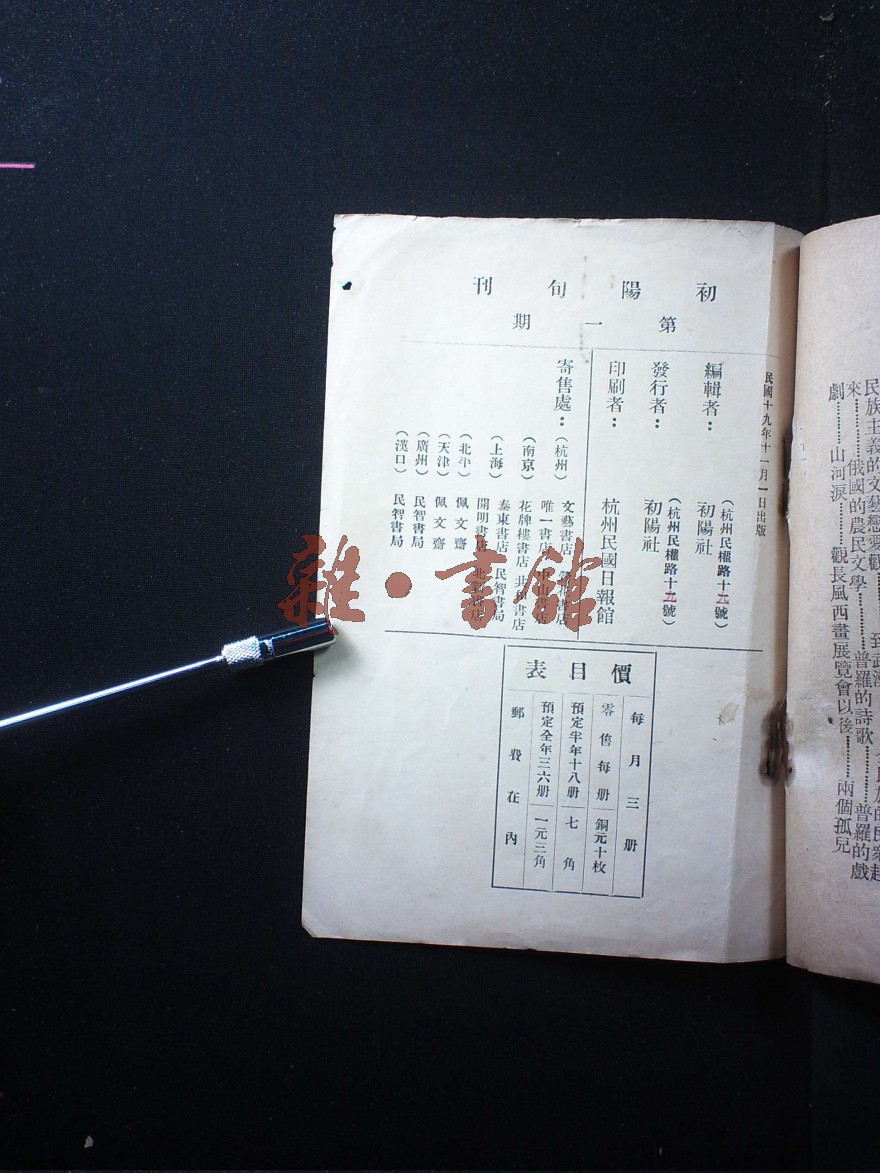 初陽旬刊
第一期
民國十九年十一月一日出版
編輯者：初陽社
（杭州民權路十五號）
發行者：初陽社
（杭州民權路十五號）
印刷者：杭州民國日報館
寄售處：（杭州）文藝書店
唯一書店
（南京）花牌樓書店
書店
（上海）泰東書店 民智書局
開明書店
（北平）佩文齋
（天津）佩文齋
（廣州）民智書局
（漢口）民智書局
價目表
每月三册
零售每册 銅元十枚
預定半年十八册 七角
預定全年三六册 一元三角
郵費在內
民族主義的文藝戀愛觀
來………俄國的農民文學………普羅的詩歌………普羅的戲
劇………山河淚………觀長風西畫展覽會以後………兩個孤兒
雜·書館